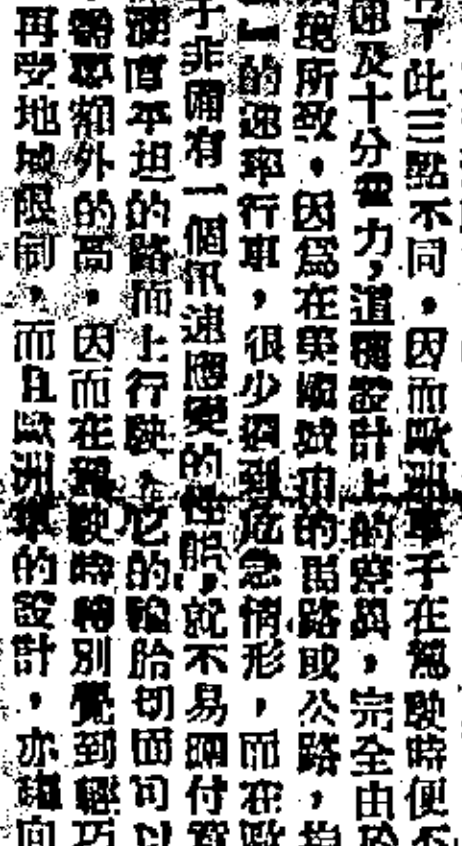 有了此三點不同。因而歐洲車子在駕駛時便不
速及十分電力，這種設計上的差異，完全由於
境所致。因為在英 城市的馬路或公路，均
』的速率行車，很少遇到危急情形，而在歐
子非備有一個汛速應變的性能，就不易應付實
滿直平坦的路面上行駛，在它的輪胎切面可以
得額外的高。因而在駕駛時特別覺到輕巧
再受地域限制，而且歐洲車的設計，亦趨向